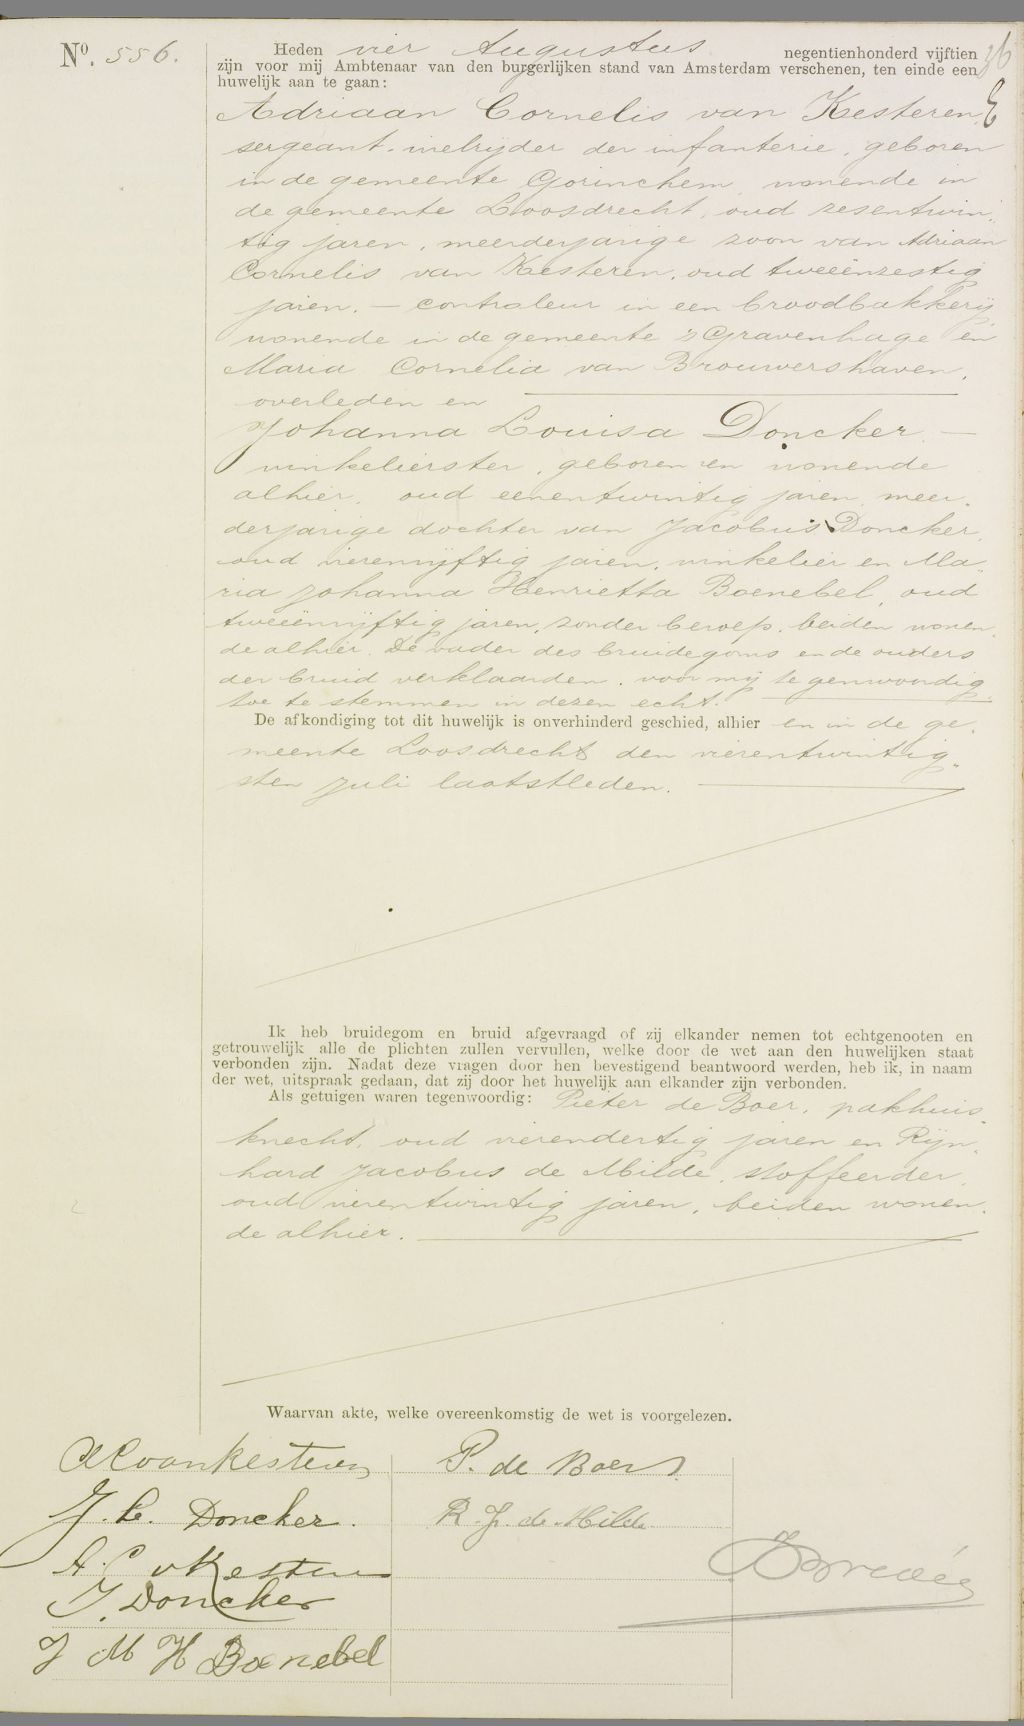 Nº. 556.
Heden vier Augustus negentienhonderd vijftien
zijn voor mij Ambtenaar van den burgerlijken stand van Amsterdam verschenen, ten einde een
huwelijk aan te gaan:
Adriaan Cornelis van Kesteren,
sergeant-wielrijder der infanterie, geboren
in de gemeente Gorinchem, wonende in
de gemeente Loosdrecht, oud zesentwin-
tig jaren, meerderjarige zoon van Adriaan
Cornelis van Kesteren, oud tweeënzestig
jaren, — controleur in een broodbakkerij,
wonende in de gemeente 's Gravenhage en
Maria Cornelia van Brouwershaven,
overleden en
Johanna Louisa Doncker —
winkelierster, geboren en wonende
alhier, oud eenentwintig jaren, meer-
derjarige dochter van Jacobus Doncker,
oud vierenvijftig jaren, winkelier en Ma-
ria Johanna Henrietta Boenebel, oud
tweeënvijftig jaren, zonder beroep, beiden wonen-
de alhier. De vader des bruidegoms en de ouders
der bruid verklaarden, voor mij tegenwoordig
toe te stemmen in dezen echt.
De afkondiging tot dit huwelijk is onverhinderd geschied, alhier en in de ge-
meente Loosdrecht den vierentwintig-
sten Juli laatstleden.
Ik heb bruidegom en bruid afgevraagd of zij elkander nemen tot echtgenooten en
getrouwelijk alle de plichten zullen vervullen, welke door de wet aan den huwelijken staat
verbonden zijn. Nadat deze vragen door hen bevestigend beantwoord werden, heb ik, in naam
der wet, uitspraak gedaan, dat zij door het huwelijk aan elkander zijn verbonden.
Als getuigen waren tegenwoordig: Pieter de Boer, pakhuis-
knecht, oud vierendertig jaren en Rijn-
hard Jacobus de Milde, stoffeerder,
oud vierentwintig jaren, beiden wonen-
de alhier.
Waarvan akte, welke overeenkomstig de wet is voorgelezen.
AC van Kesteren
P. de Boer
J. L. Doncker.
R. J. de Milde
A. C v Kesteren
J. Doncker
J M H Boenebel